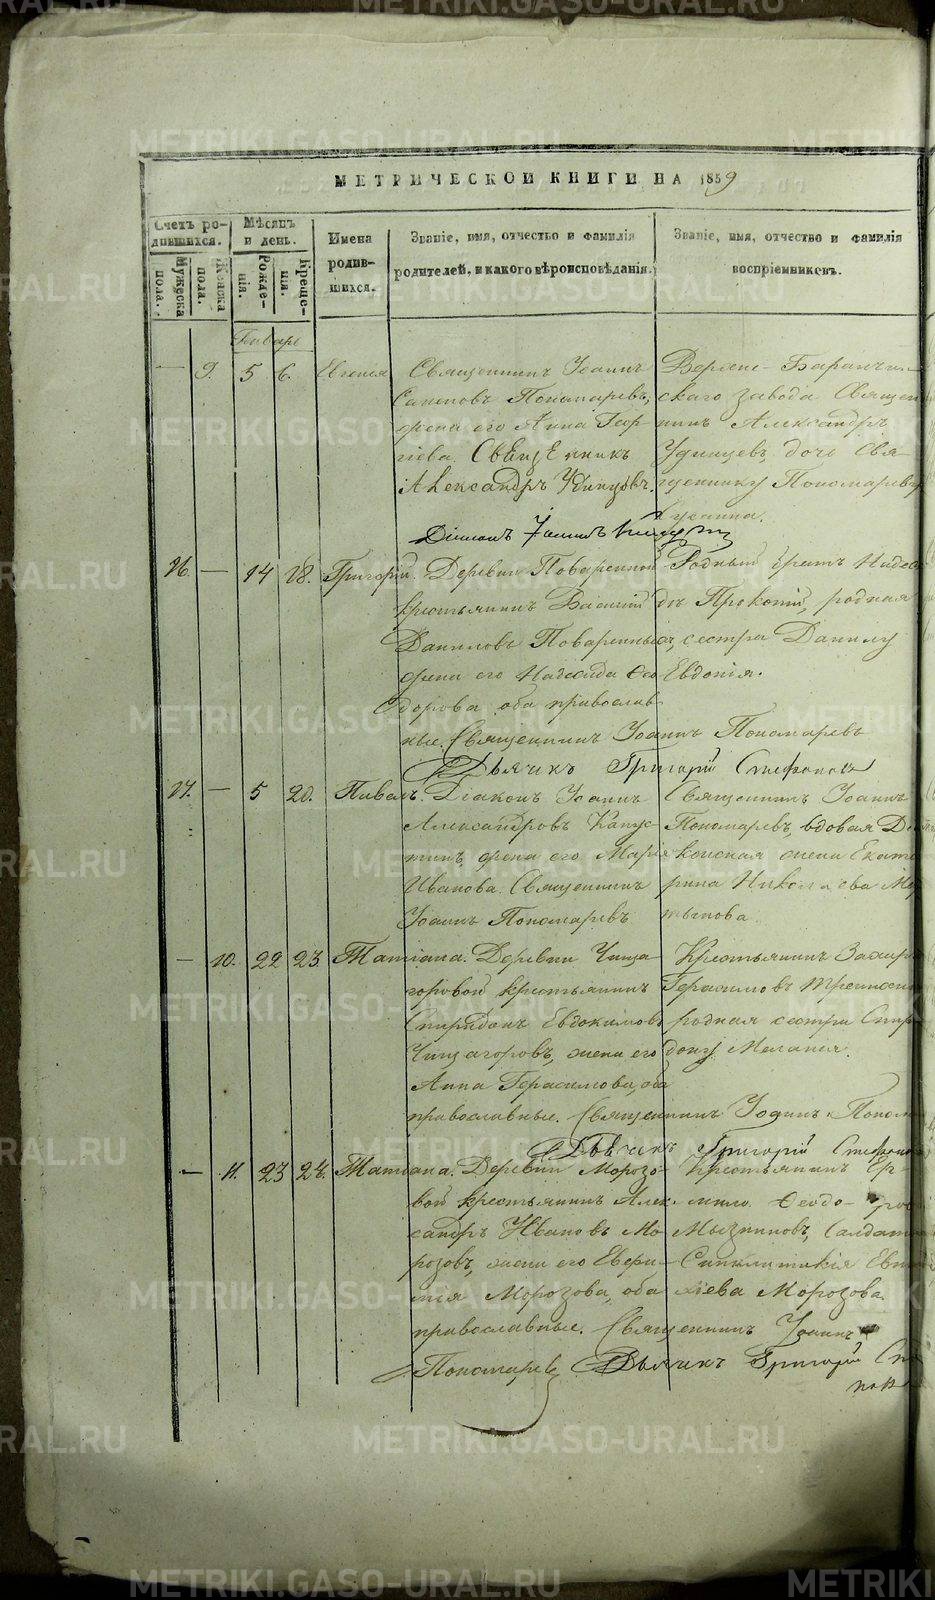 МЕТРИЧЕСКОЙ КНИГИ НА 1859
Счетъ родившихся.
Мужеска пола.
Женска пола.
Мѣсяцъ и день.
Рожденія.
Крещенія.
Имена родившихся.
Званіе, имя, отчество и фамилія родителей, и какого вѣроисповѣданія.
Званіе, имя, отчество и фамилія воспріемниковъ.
Январь
— 9. 5 6. Евгенія
Священникъ Іоаннъ
Пономаревъ,
жена его Анна Геор-
гіева. Священникъ
Александръ Удинцовъ.
Діаконъ Іоаннъ
Верхне-Баранчин-
скаго завода Священ
никъ Александръ
Удинцевъ, дочь Свя-
щеннику Пономареву
16. — 14 18. Григорій.
Деревни Поваренной
крестьянинъ Василій
Даниловъ Поваренныхъ,
жена его Надежда Ѳео
дорова, оба православ
ные. Священникъ Іоаннъ Пономаревъ
Дьячикъ Григорій Стефановъ
Родный братъ Надеж
дѣ Прокопій, родная
сестра Данилу
Евдокія.
17. — 5 20. Павелъ.
Діаконъ Іоаннъ
Александровъ Капус-
тинъ, жена его Марія
Иванова. Священникъ
Іоаннъ Пономаревъ
Священникъ Іоаннъ
Пономаревъ, вдовая Дія
конская жена Екате
рина Николаева
— 10. 22 23. Татіана.
Деревни Чаща
горовой крестьянинъ
Спиридонъ Евдокимовъ
Чащагоровъ, жена его
Анна Герасимова, оба
православные. Священникъ Іоаннъ Поном
Дьячикъ Григорій Стефановъ
Крестьянинъ Захаръ
Герасимовъ
родная сестра Спири
дону Меланія.
— 11. 23 24. Татіана.
Деревни Морозо-
вой крестьянинъ Алек
сандръ Ивановъ Мо
розовъ, жена его
Морозова, оба
православные. Священникъ Іоаннъ
Пономаревъ Дьячикъ Григорій
Крестьянинъ Ер-
Мызниковъ, Салдат
Синклитикія
Морозова.
METRIKI.GASO-URAL.RU